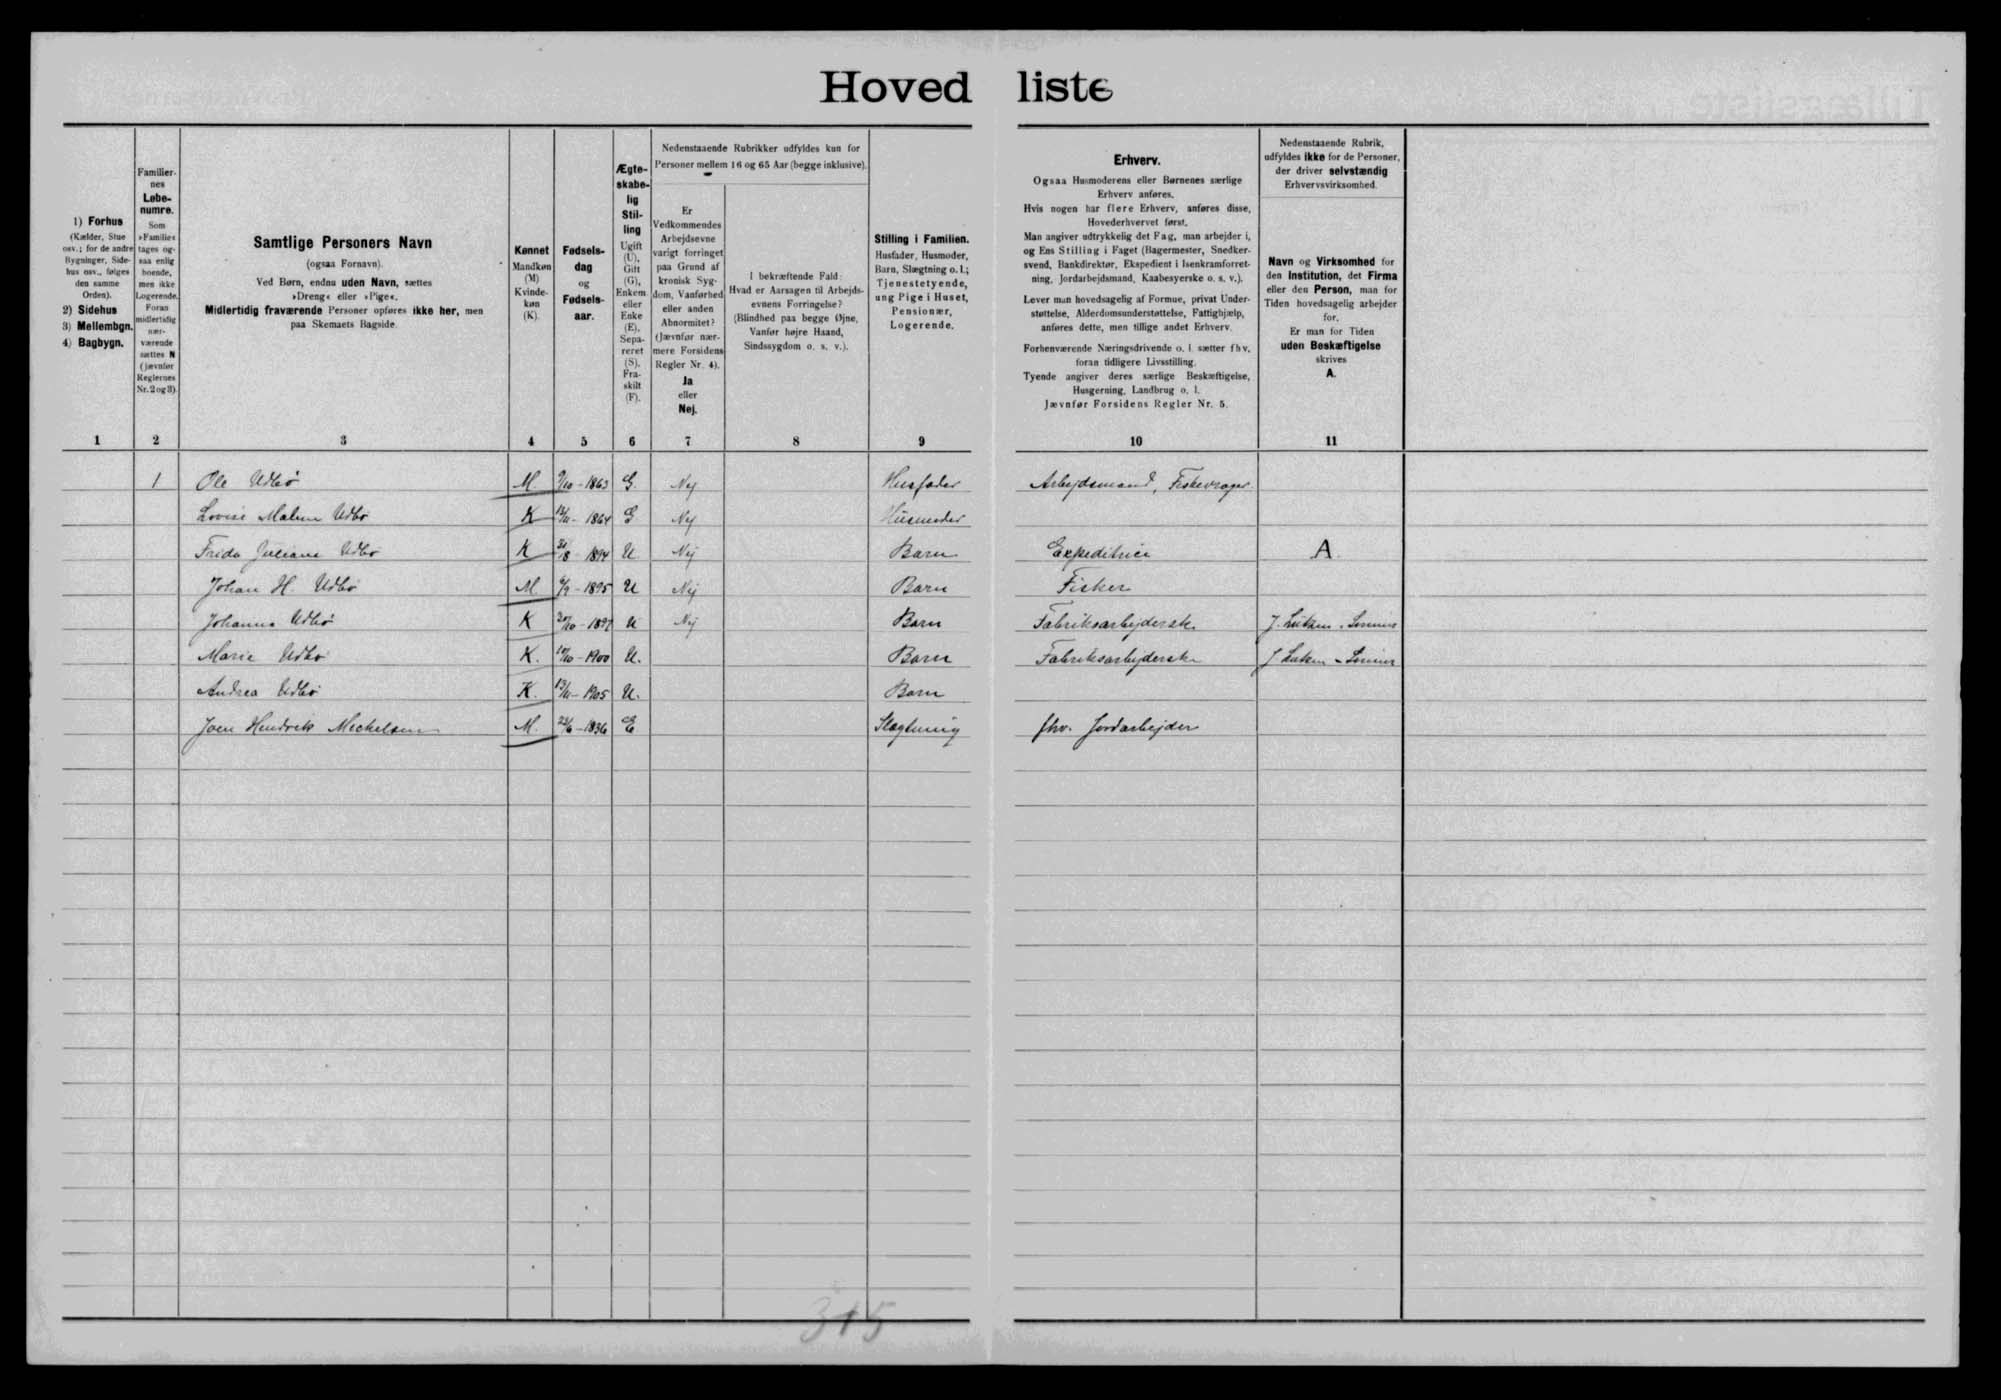 Hovedliste
1) Forhus
(Kælder, Stue
osv.; for de andre
Bygninger, Side-
hus osv., følges
den samme
Orden).
2) Sidehus
3) Mellembgn.
4) Bagbygn.
Familier-
nes
Løbe-
numre.
Som
»Familie«
tages og-
saa enlig
boende,
men ikke
Logerende.
Foran
midlertidig
nær-
værende
sættes N
(jævnfør
Reglernes
Nr. 2 og 3).
Samtlige Personers Navn
(ogsaa Fornavn).
Ved Børn, endnu uden Navn, sættes
»Dreng« eller »Pige«.
Midlertidig fraværende Personer opføres ikke her, men
paa Skemaets Bagside.
Kønnet
Mandkøn
(M)
Kvinde-
køn
(K).
Fødsels-
dag
og
Fødsels-
aar.
Ægte-
skabe-
lig
Stil-
ling
Ugift
(U),
Gift
(G),
Enkem.
eller
Enke
(E),
Sepa-
reret
(S),
Fra-
skilt
(F).
Nedenstaaende Rubrikker udfyldes kun for
Personer mellem 16 og 65 Aar (begge inklusive).
Er
Vedkommendes
Arbejdsevne
varigt forringet
paa Grund af
kronisk Syg-
dom, Vanførhed
eller anden
Abnormitet?
(Jævnfør nær-
mere Forsidens
Regler Nr. 4).
Ja
eller
Nej.
I bekræftende Fald:
Hvad er Aarsagen til Arbejds-
evnens Forringelse?
(Blindhed paa begge Øjne,
Vanfør højre Haand,
Sindssygdom o. s. v.).
Stilling i Familien.
Husfader, Husmoder,
Barn, Slægtning o. l.;
Tjenestetyende,
ung Pige i Huset,
Pensionær,
Logerende.
Erhverv.
Ogsaa Husmoderens eller Børnenes særlige
Erhverv anføres.
Hvis nogen har flere Erhverv, anføres disse,
Hovederhvervet først.
Man angiver udtrykkelig det Fag, man arbejder i,
og Ens Stilling i Faget (Bagermester, Snedker-
svend, Bankdirektør, Ekspedient i Isenkramforret-
ning, Jordarbejdsmand, Kaabesyerske o. s. v.).
Lever man hovedsagelig af Formue, privat Under-
støttelse, Alderdomsunderstøttelse, Fattighjælp,
anføres dette, men tillige andet Erhverv.
Forhenværende Næringsdrivende o. l. sætter fhv.
foran tidligere Livsstilling.
Tyende angiver deres særlige Beskæftigelse,
Husgerning, Landbrug o. l.
Jævnfør Forsidens Regler Nr. 5.
Nedenstaaende Rubrik,
udfyldes ikke for de Personer,
der driver selvstændig
Erhvervsvirksomhed.
Navn og Virksomhed for
den Institution, det Firma
eller den Person, man for
Tiden hovedsagelig arbejder
for.
Er man for Tiden
uden Beskæftigelse
skrives
A.
1 2 3 4 5 6 7 8 9 10 11
1 Ole Udbø M. 9/10-1863 G. Nej Husfader Arbejdsmand, Fiskevrager
Lovise Malene Udbø K 1864 G Nej Husmoder
Frida Juliane Udbø K 31/8-1894 U Nej Barn Expeditrice A
Johan H. Udbø M 1895 U Nej Barn Fisker
Johanna Udbø K 20/10-1897 U Nej Barn Fabriksarbejderske J.
Marie Udbø K. 1900 U. Barn Fabriksarbejderske J.
Andrea Udbø K. 1905 U. Barn
Joen Hendrik Mechelsen M. 1836 E Slægtning fhv. Jordarbejder
315